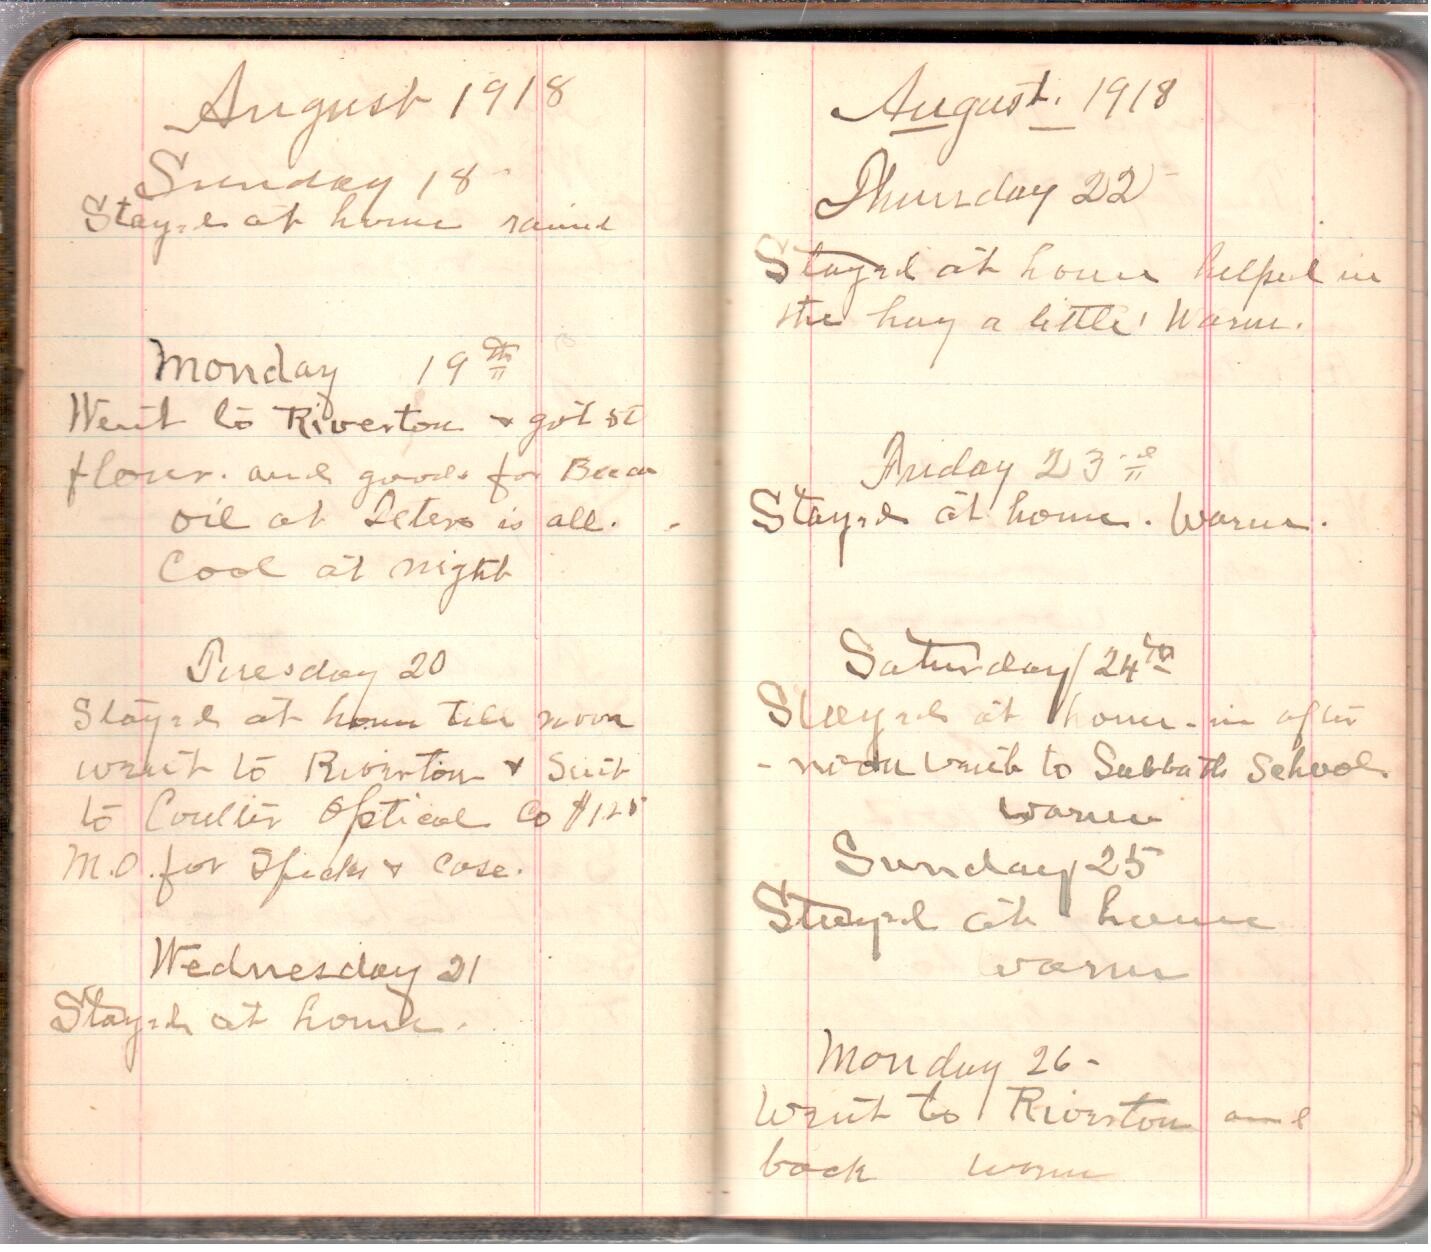 August 1918
Sunday 18
Stayed at home rained
Monday 19th
Went to Riverton & got st
flour. and goods for
oil at Peters is all.
Cool at night
Tuesday 20
Stayed at home till noon
went to Riverton & Sent
to Coulter Optical Co $1.25
M.O. for Specks & Case.
Wednesday 21
Stayed at home.
August. 1918
Thursday 22
Stayed at home helped in
the hay a little! Warm.
Friday 23rd
Stayed at home. Warm.
Saturday 24th
Stayed at home - in after
- noon went to Sabbath School.
warm
Sunday 25
Stayed at home
warm
Monday 26 -
Went to Riverton and
back warm